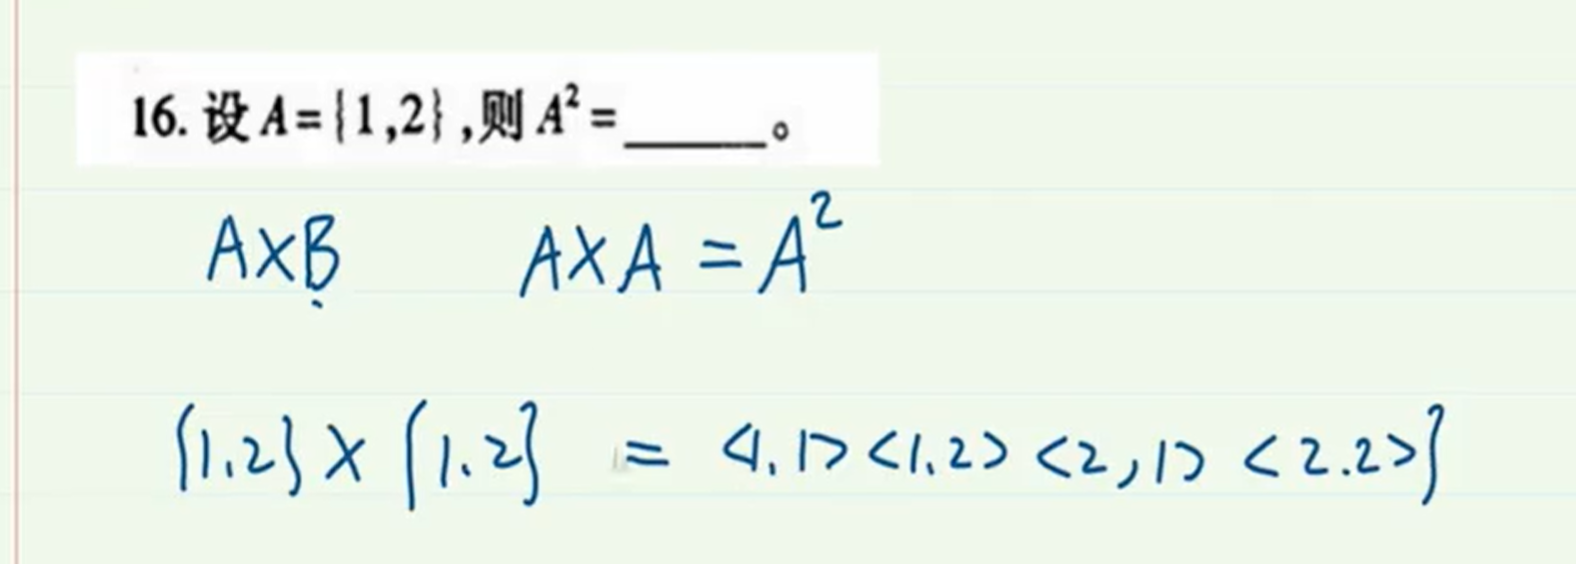 16. 设 A={1,2},则 A²=______。
A×B A×A = A²
{1.2} × {1.2} = <1.1> <1.2> <2,1> <2.2>}